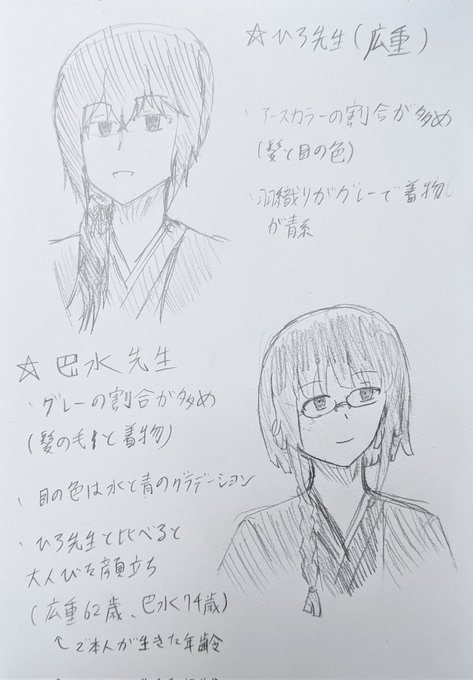 ☆ひろ先生(広重)
・アースカラーの割合が多め
(髪と目の色)
・羽織りがグレーで着物
が青系
☆巴水先生
・グレーの割合が多め
(髪の毛と着物)
・目の色は水と青のグラデーション
・ひろ先生と比べると
大人びた顔立ち
(広重62歳、巴水74歳)
↑ご本人が生きた年齢